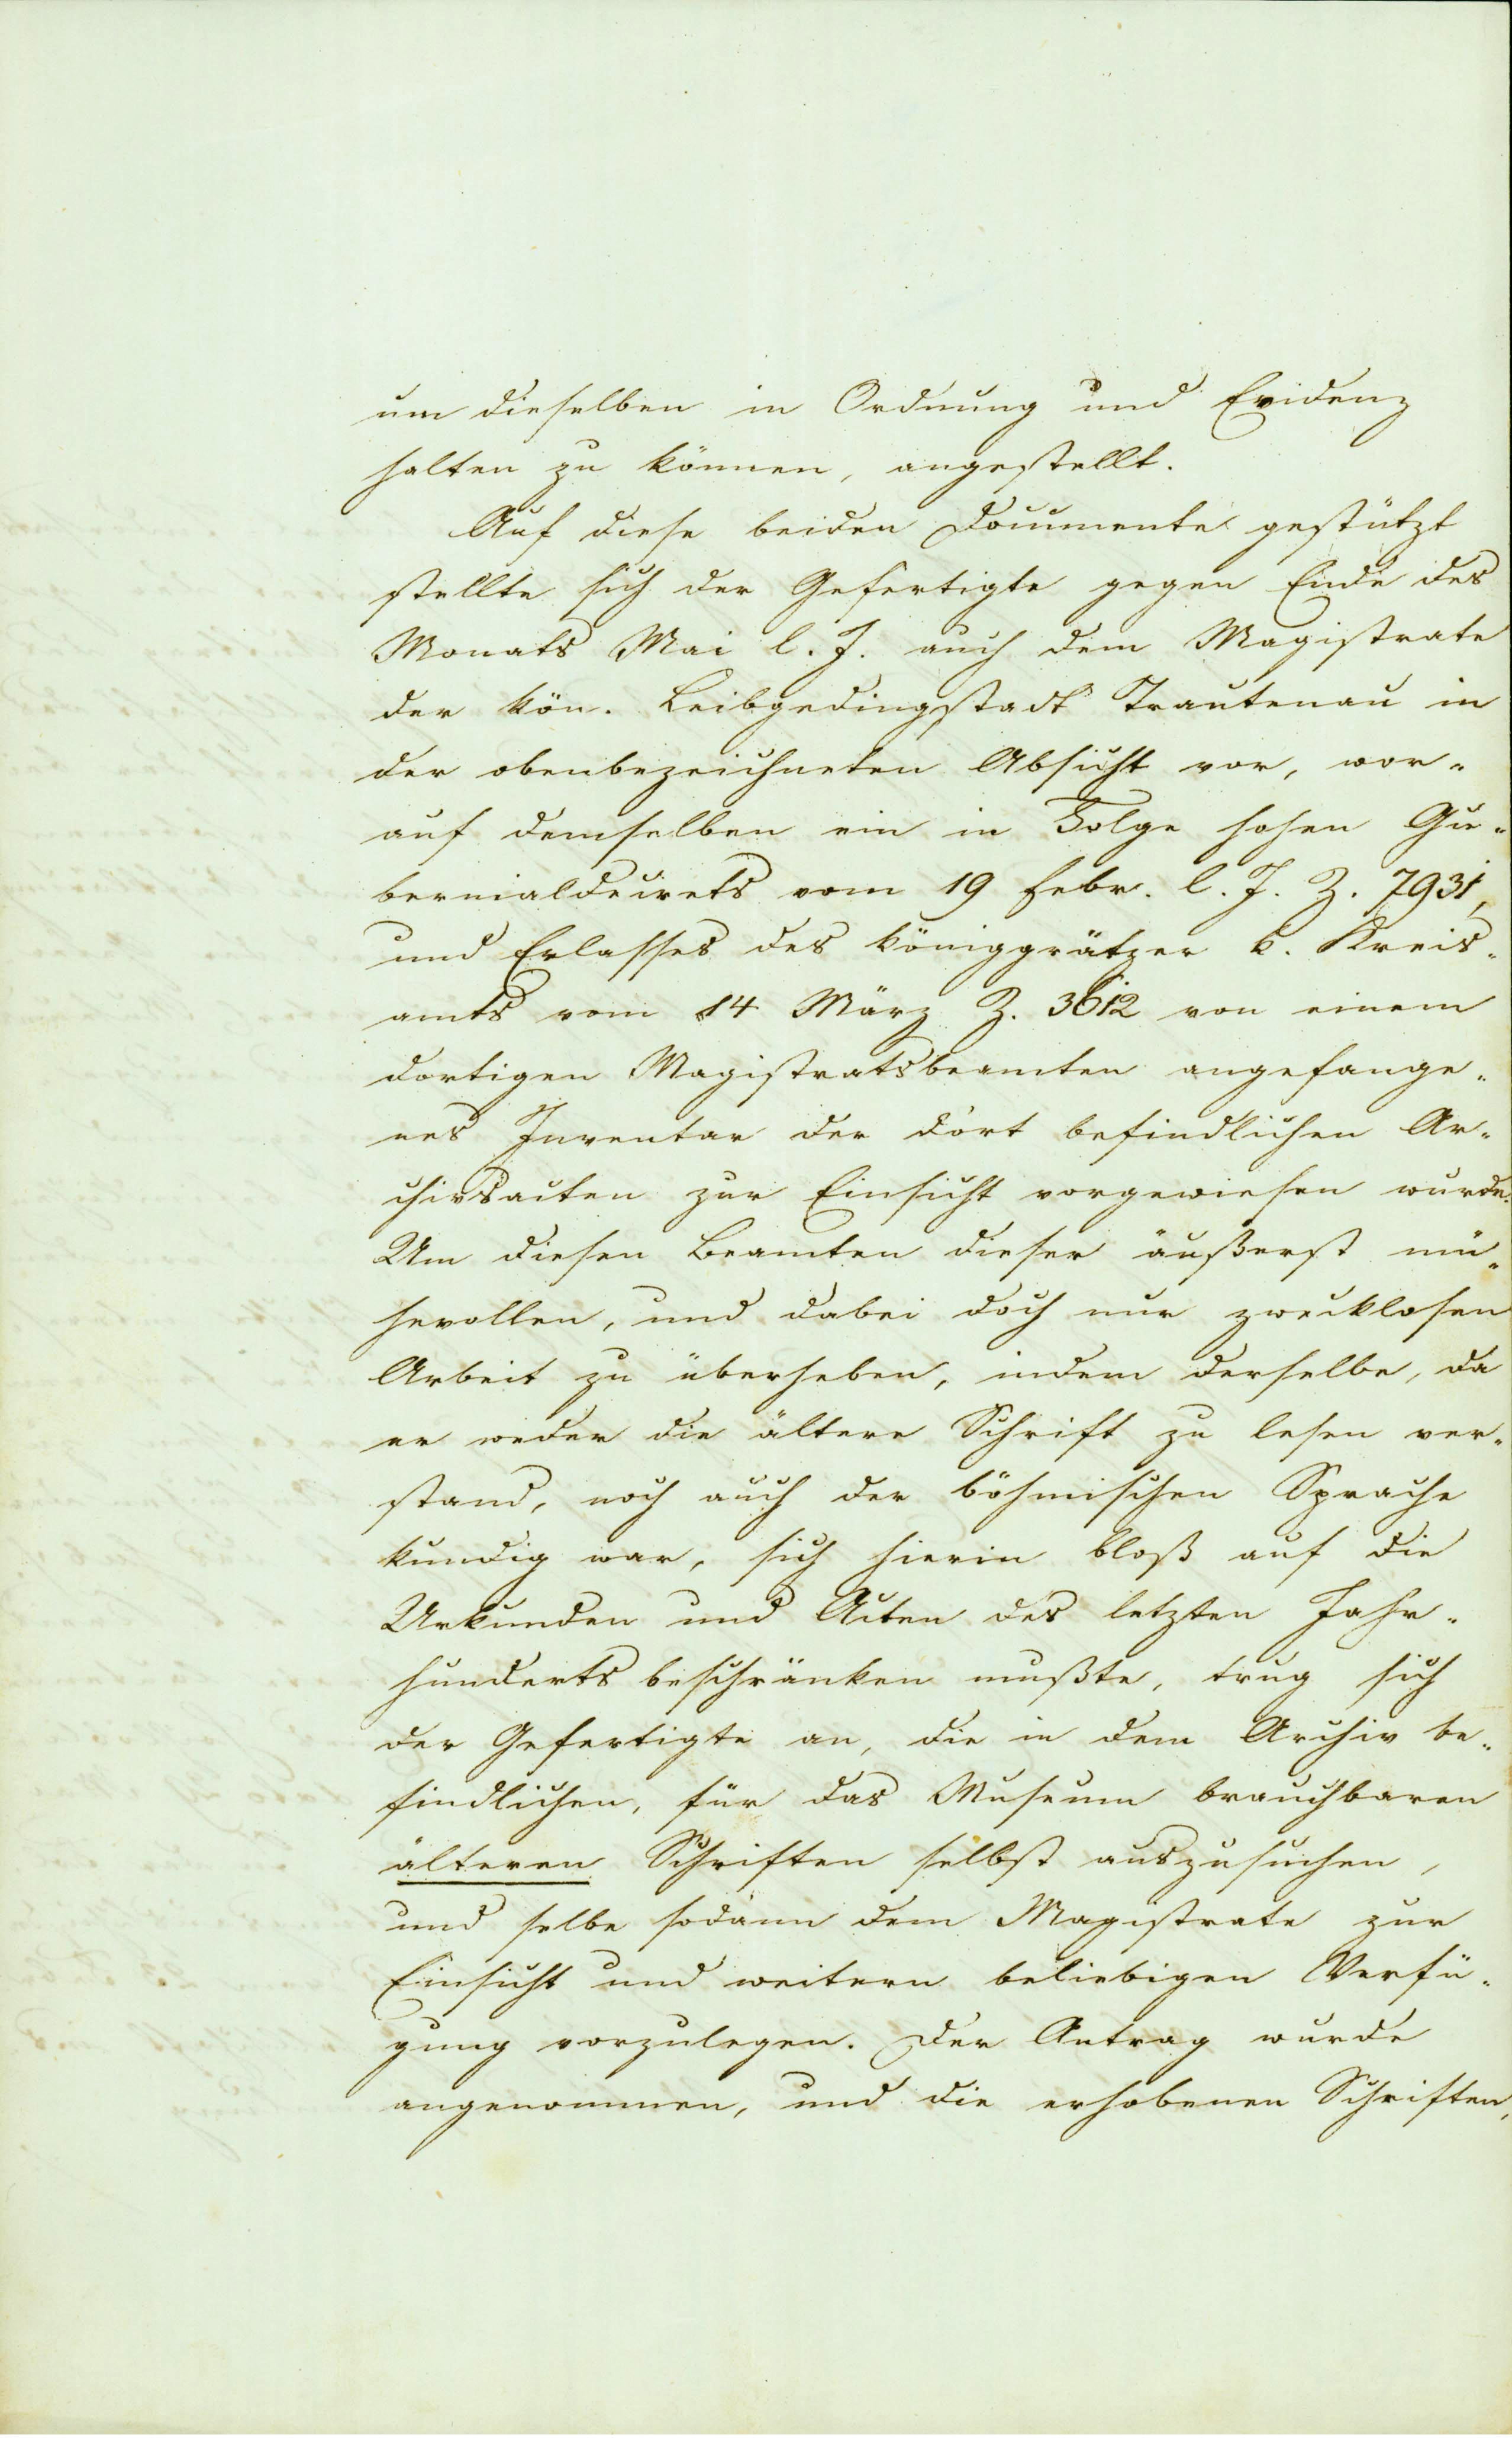 um dieselben in Ordnung und Evidenz
halten zu können, angestellt.
Auf diese beiden Documente gestützt
stellte sich der Gefertigte gegen Ende des
Monats Mai l. J. auch dem Magistrate
der kön. Leibgedingstadt Trautenau in
der obenbezeichneten Absicht vor, wor-
auf demselben ein in Folge hohen Gu-
bernialdecrets vom 19 Febr. l. J. Z. 7931,
und Erlasses des königgrätzer k. Kreis-
amts vom 14 März Z. 3612 von einem
dortigen Magistratsbeamten angefange-
nes Inventar der dort befindlichen Ar-
chivsacten zur Einsicht vorgewiesen wurde.
Um diesen Beamten dieser äußerst mü-
hevollen, und dabei doch nur zwecklosen
Arbeit zu überheben, indem derselbe, da
er weder die ältere Schrift zu lesen ver-
stand, noch auch der böhmischen Sprache
kundig war, sich hierin bloß auf die
Urkunden und Acten des letzten Jahr-
hunderts beschränken mußte, trug sich
der Gefertigte an, die in dem Archiv be-
findlichen, für das Museum brauchbaren
älteren Schriften selbst auszusuchen,
und selbe sodann dem Magistrate zur
Einsicht und weitern beliebigen Verfü-
gung vorzulegen. Der Antrag wurde
angenommen, und die erhobenen Schriften,